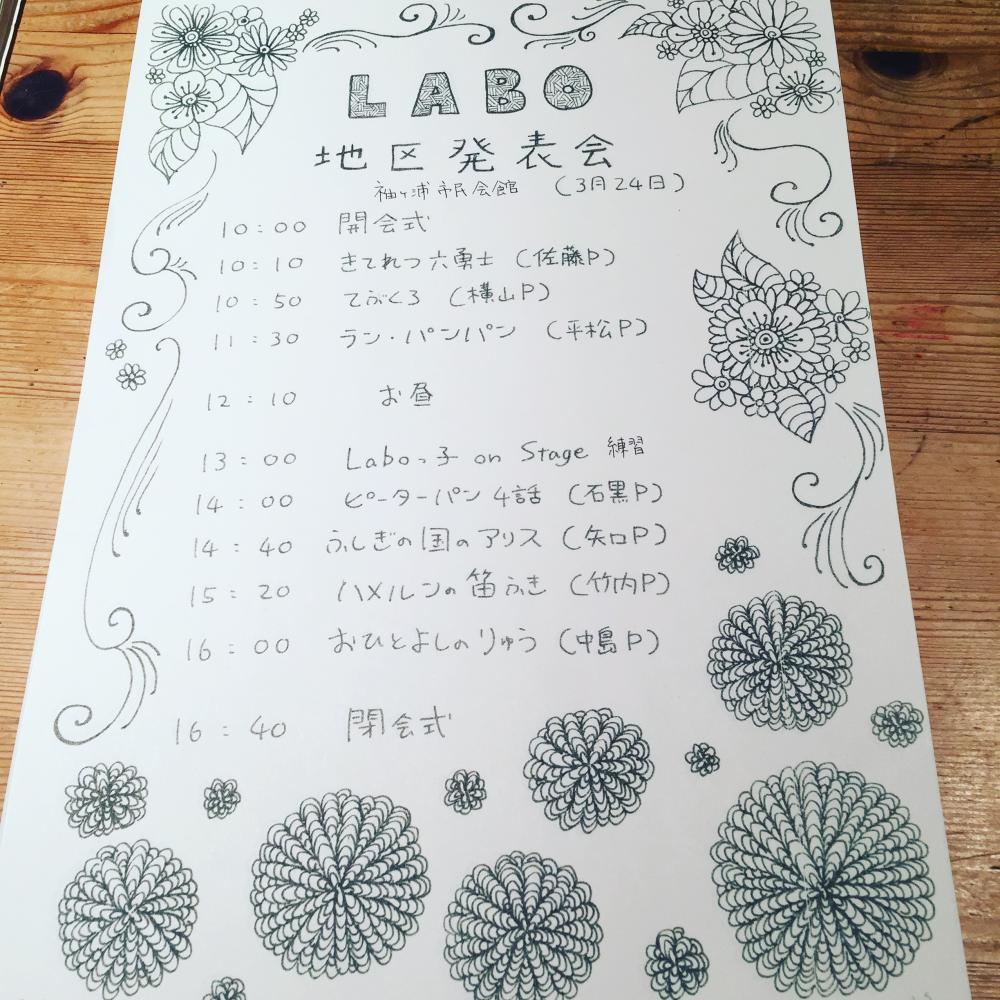 LABO
地区発表会
袖ヶ浦市民会館 (3月24日)
10:00 開会式
10:10 きてれつ六勇士 (佐藤P)
10:50 てぶくろ (横山P)
11:30 ラン・パンパン (平松P)
12:10 お昼
13:00 Laboっ子 on Stage 練習
14:00 ピーターパン 4話 (石黒P)
14:40 ふしぎの国のアリス (矢口P)
15:20 ハメルンの笛ふき (竹内P)
16:00 おひとよしのりゅう (中島P)
16:40 閉会式